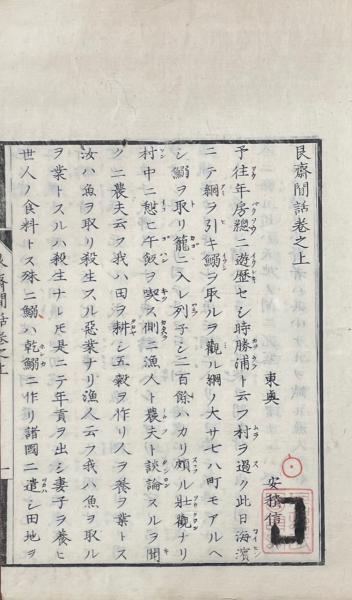 艮齋閒話卷之上
東奥 安積信
予往年房總ニ遊歴セシ時勝浦ト云フ村ヲ過ク此日海濱
ニテ網ヲ引キ鰯ヲ取ルヲ觀ル網ノ大サ七八町モアルヘ
シ鰯ヲ取リ籠ニ入レ列子シニ百餘ハカリ頗ル壯觀ナリ
村中ニ憩ヒ午飯ヲ喫ス側ニ漁人ト農夫ト談論スルヲ聞
クニ農夫云フ我ハ田ヲ耕シ五穀ヲ作リ人ヲ養フ業トス
汝ハ魚ヲ取リ殺生スル惡業ナリ漁人云フ我ハ魚ヲ取ル
ヲ業トスルハ殺生ナレ𪜈是ニテ年貢ヲ出シ妻子ヲ養ヒ
世人ノ食料トス殊ニ鰯ハ乾鰯ニ作リ諸國ニ遣シ田地ヲ
艮齋閒話卷之上
一